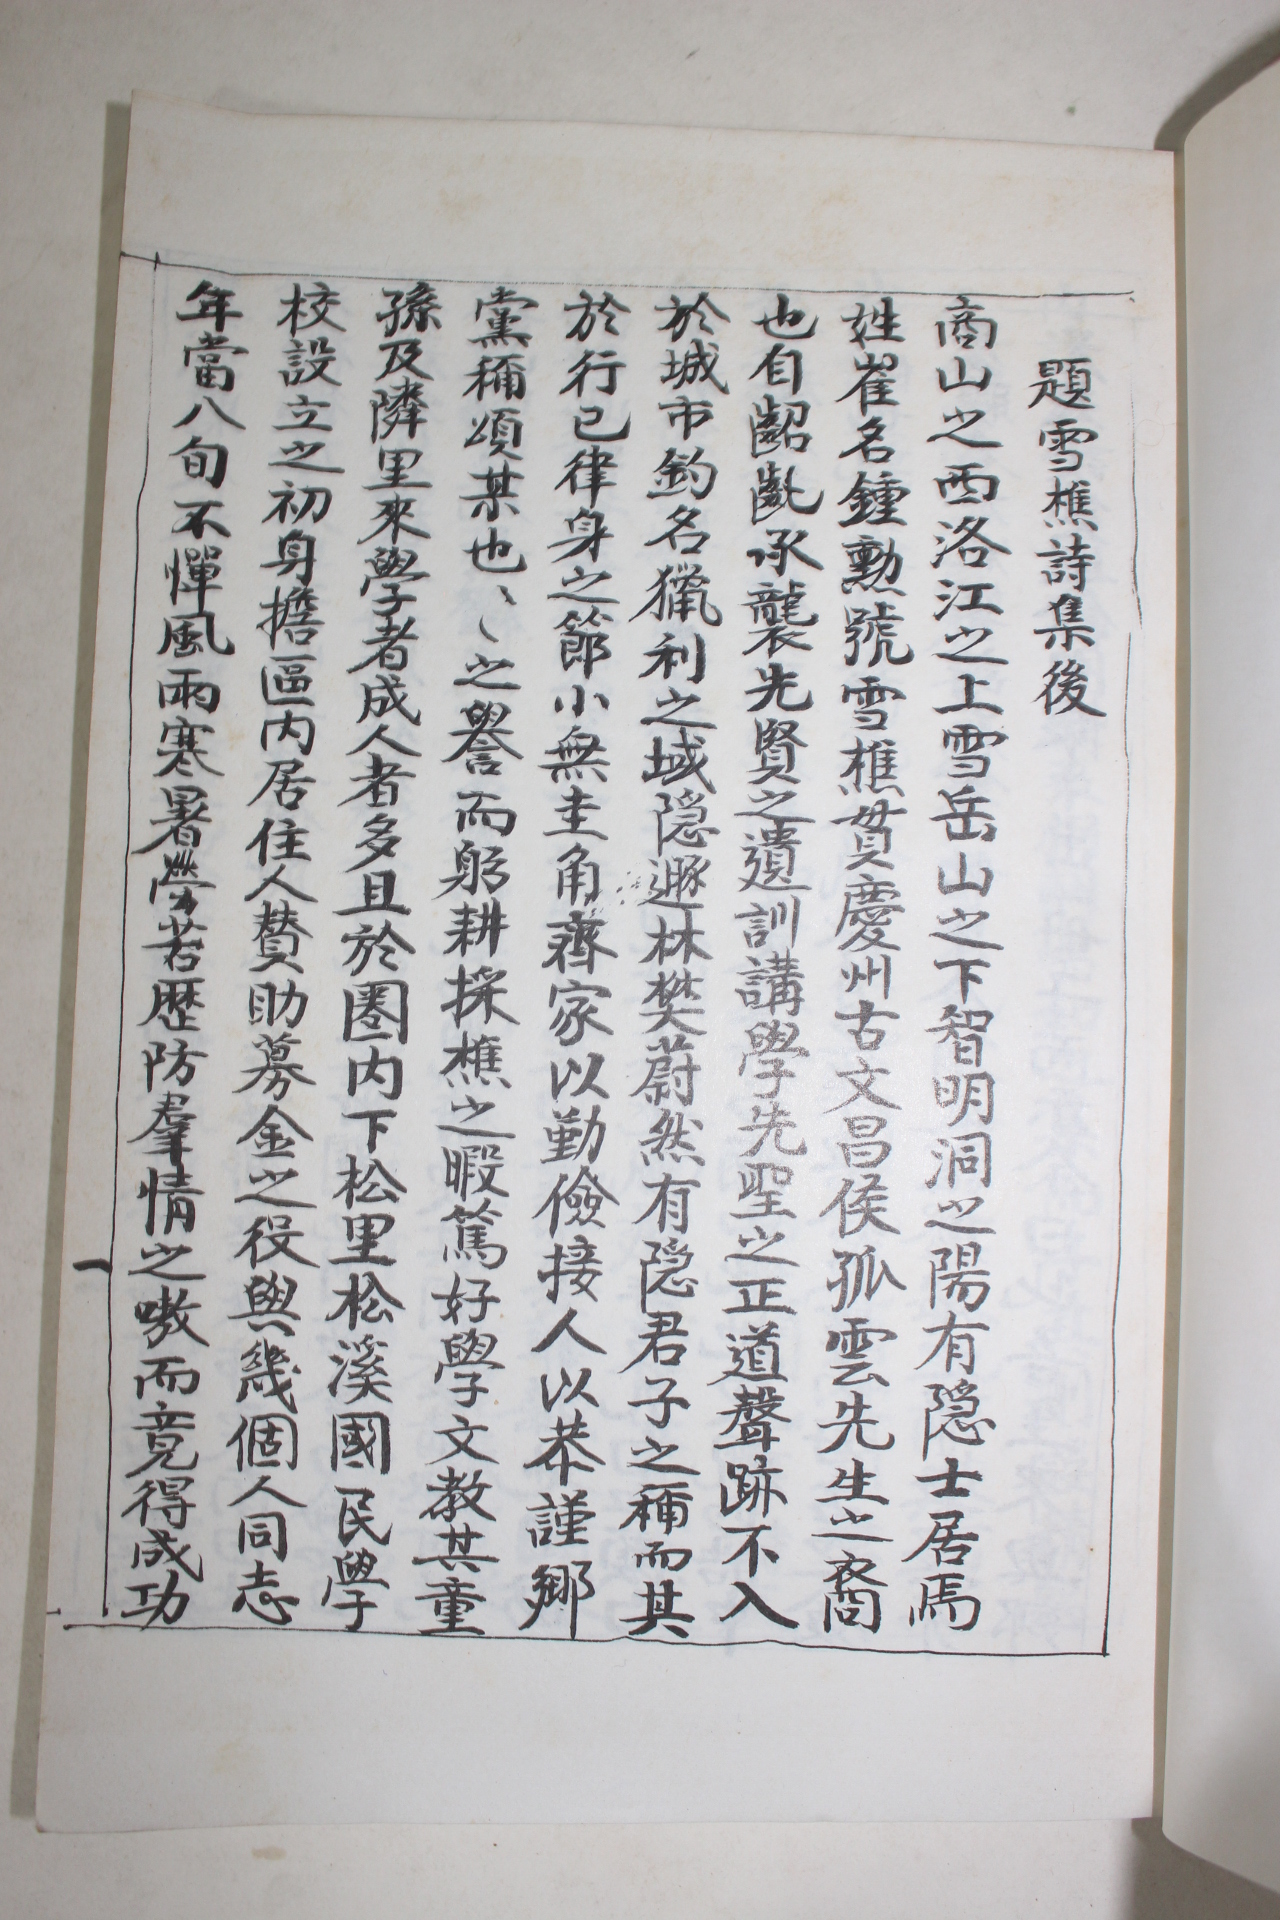 題雪樵詩集後
商山之西洛江之上雪岳山之下智明洞之陽有隐士居焉
姓崔名鍾勳號雪樵貫慶州古文昌侯孤雲先生之裔
也自齠齔承襲先賢之遺訓講學先聖之正道聲跡不入
於城市釣名獵利之域隐遯林樊蔚然有隐君子之稱而其
於行已律身之節小無圭角齊家以勤儉接人以恭謹鄉
黨稱頌某也〻〻之譽而躬耕採樵之暇篤好學文教其童
孫及隣里來學者成人者多且於圏内下松里松溪國民學
校設立之初身擔區内居住人贊助募金之役與幾個人同志
年當八旬不憚風雨寒暑勞苦歷防羣情之嗷而竟得成功
一